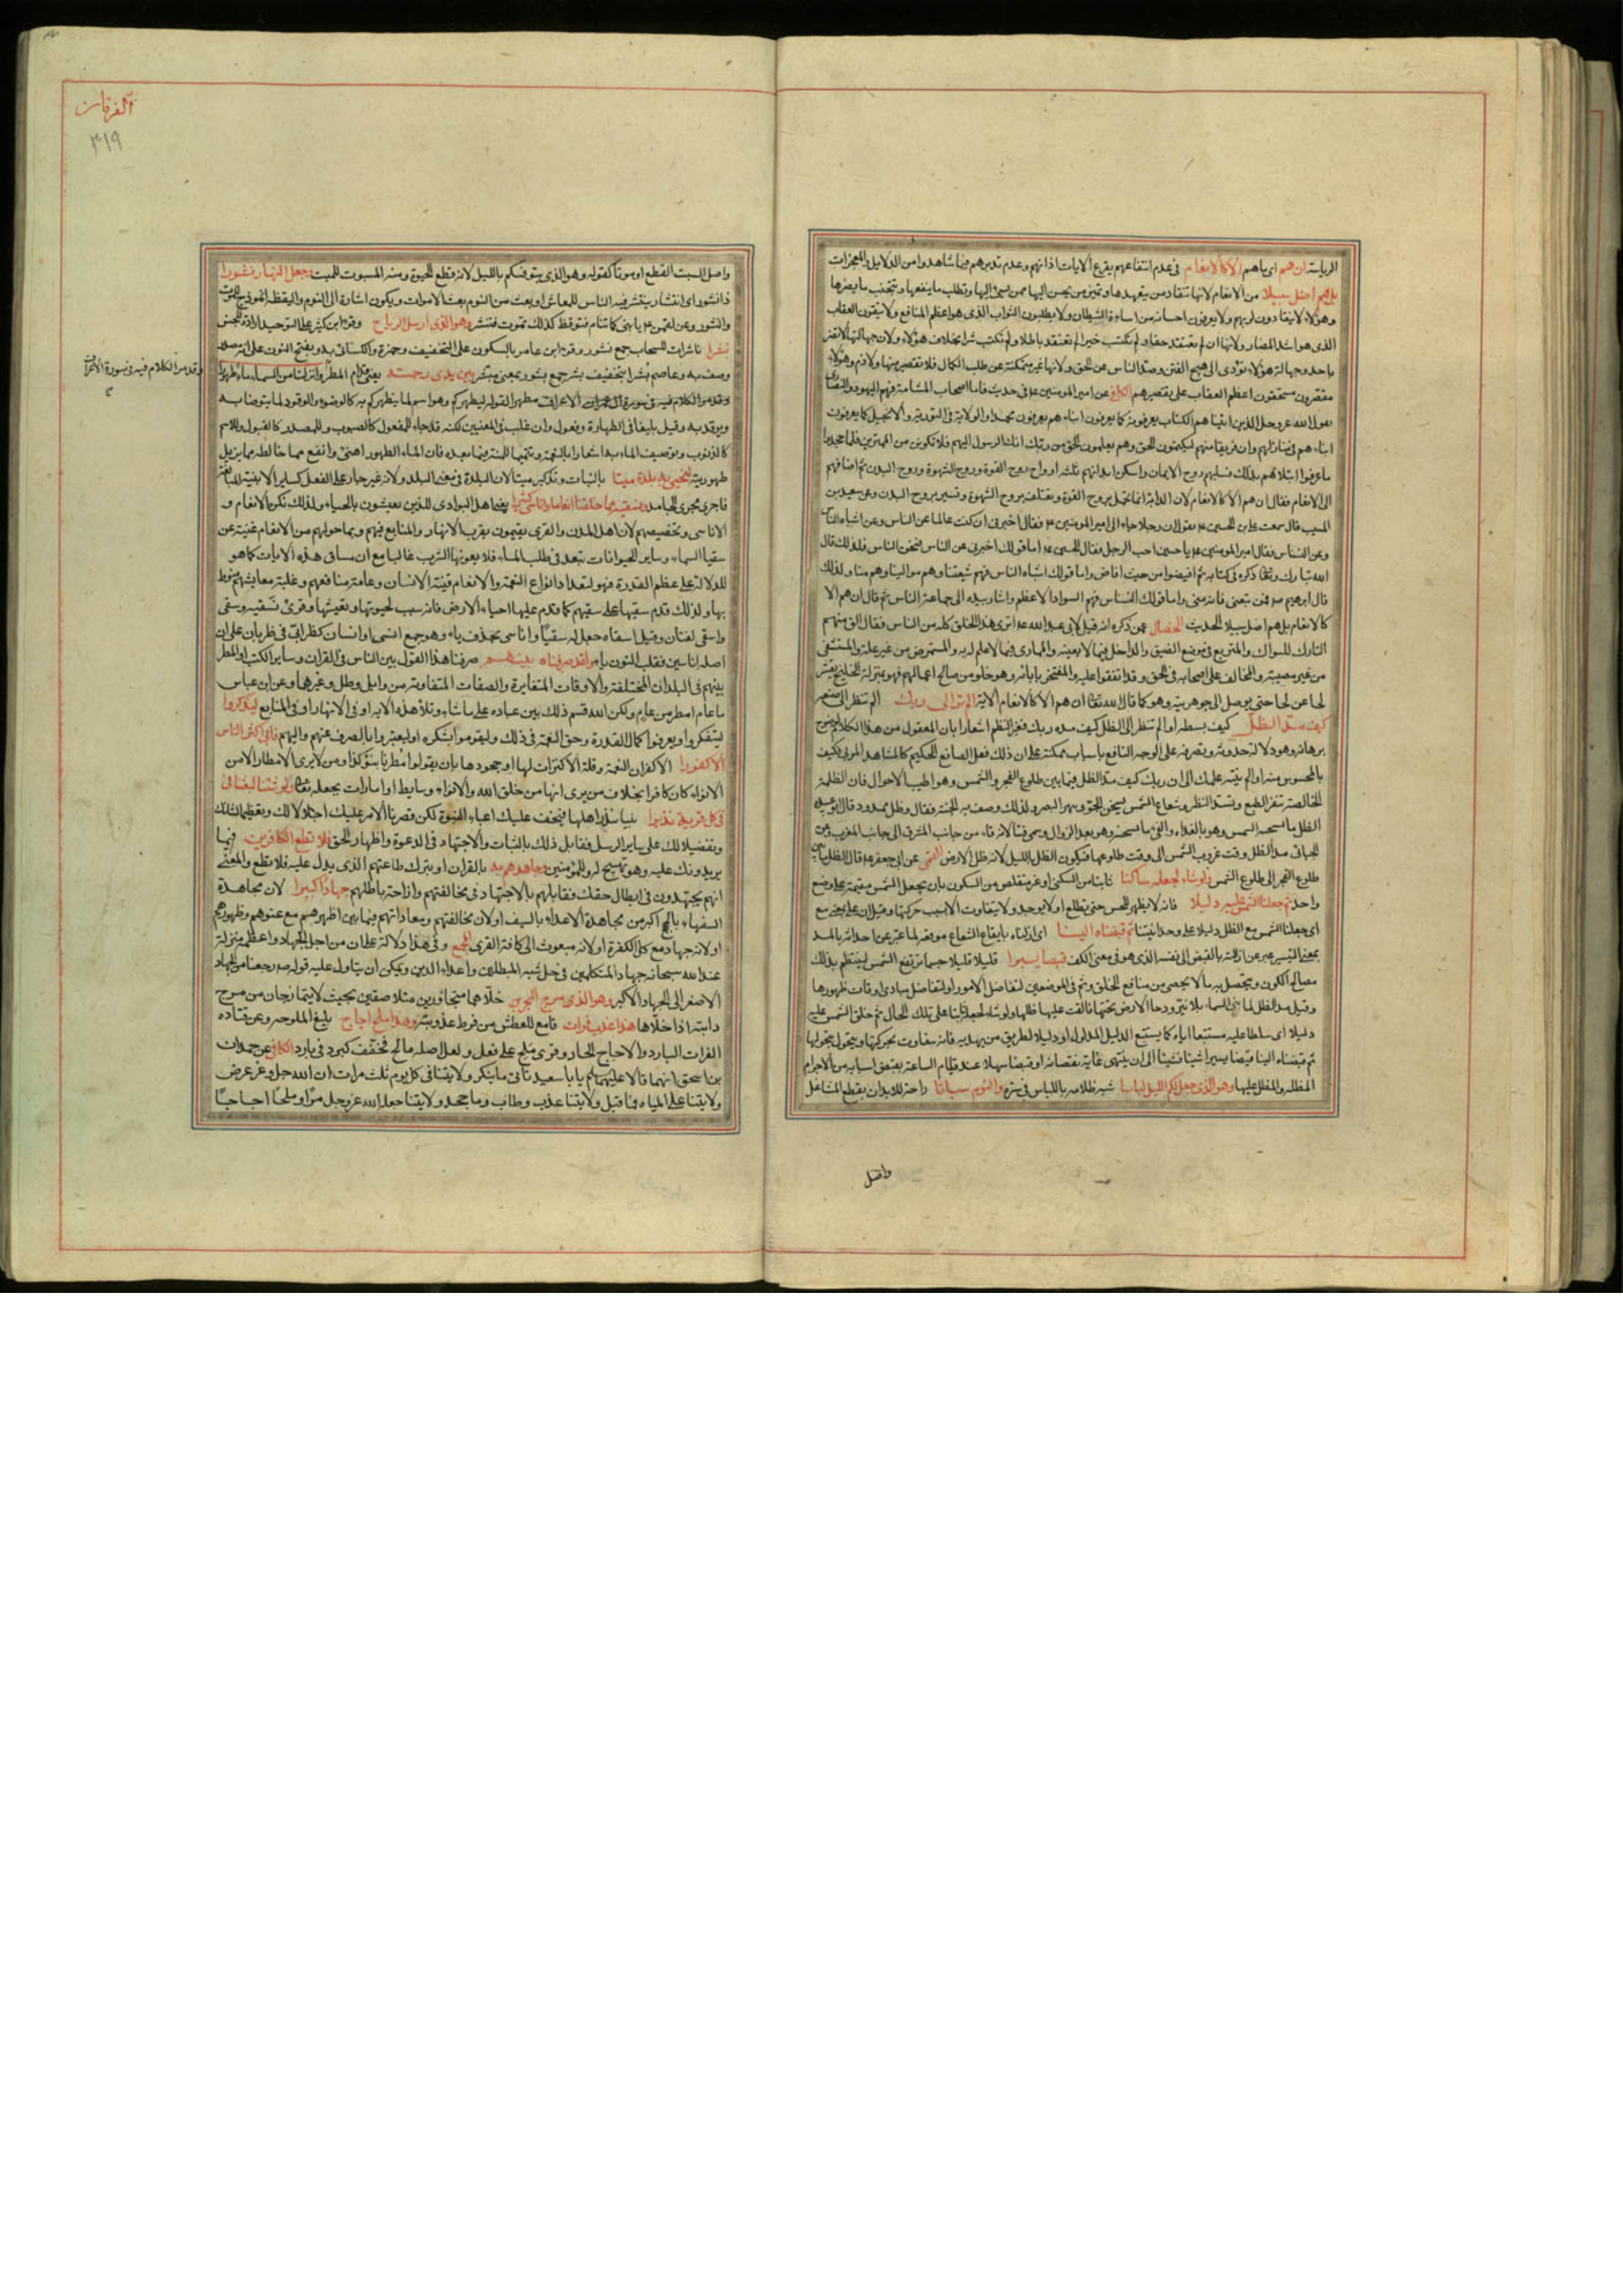 الرياسة ان هم اى ما هم الا كالانعام فى عدم انتفاعهم بقرع الايات اذانهم وعدم تدبرهم فيما شاهدوا من الدلايل والمعجزات
بل هم اضل سبيلا من الانعام لانها تنقاد من يتعهدها وتميز من يحسن اليها ممن يسئ اليها وتطلب ما ينفعها وتتجنب ما يضرها
وهؤلاء لا ينقادون لربهم ولا يعرفون احسانه من اساءة الشيطان ولا يطلبون الثواب الذى هو اعظم المنافع ولا يتقون العقاب
الذى هو اشد المضار ولانها ان لم تعتقد حقا ولم تكتسب خيرا لم تعتقد باطلا ولم تكتسب شرا بخلاف هؤلاء ولان جهالتها لا تضر
باحد وجهالة هؤلاء تؤدى الى هيج الفتن وصد الناس عن الحق ولانها غير متمكنة عن طلب الكمال فلا تقصير منها ولا ذم وهؤلاء
مقصرون مستحقون اعظم العقاب على تقصيرهم الكافى عن امير المومنين ع فى حديث فاما اصحاب المشامة فهم اليهود والنصارى
يقول الله عز وجل الذين اتيناهم الكتاب يعرفونه كما يعرفون ابناءهم يعرفون محمدا والولاية فى التورية والانجيل كما يعرفون
ابناءهم فى منازلهم وان فريقا منهم ليكتمون الحق وهم يعلمون الحق من ربك انك الرسول اليهم فلا تكونن من الممترين فلما جحدوا
ما عرفوا ابتلاهم بذلك فسلبهم روح الايمان واسكن ابدانهم ثلثة ارواح روح القوة وروح الشهوة وروح البدن ثم اضافهم
الى الانعام فقال ان هم الا كالانعام لان الدابة انما تحمل بروح القوة وتعتلف بروح الشهوة وتسير بروح البدن وعن سعيد بن
المسيب قال سمعت على بن الحسين ع يقول ان رجلا جاء الى امير المومنين ع فقال اخبرنى ان كنت عالما عن الناس وعن اشباه الناس
وعن النسناس فقال امير المومنين ع يا حسين اجب الرجل فقال الحسين ع اما قولك اخبرنى عن الناس فنحن الناس فلذلك قال
الله تبارك وتعالى ذكره فى كتابه ثم افيضوا من حيث افاض واما قولك اشباه الناس فهم شيعتنا وهم موالينا وهم منا ولذلك
قال ابرهيم فمن تبعنى فانه منى واما قولك النسناس فهم السواد الاعظم واشار بيده الى جماعة الناس ثم قال ان هم الا
كالانعام بل هم اضل سبيلا الحديث الخصال عمن ذكره انه قيل لابى عبد الله ع اترى هذا الخلق كله من الناس فقال الق منهم
التارك للسواك والمتربع فى موضع الضيق والداخل فيما لا يعنيه والممارى فيما لا علم له به والمتمرض من غير علة والمتشعث
من غير مصيبة والمخالف على اصحابه فى الحق وقد اتفقوا عليه والمفتخر بابائه وهو خلو من صالح اعمالهم فهو بمنزلة الخلنج يقشر
لحا عن لحا حتى يوصل الى جوهريته وهو كما قال الله تعالى ان هم الا كالانعام الاية الم تر الى ربك الم تنظر الى صنعه
كيف مد الظل كيف بسطه او الم تنظر الى الظل كيف مده ربك فغير النظم اشعارا بان المعقول من هذا الكلام لوضوح
برهانه وهو دلالة حدوثه وتصرفه على الوجه النافع باسباب ممكنة على ان ذلك فعل الصانع الحكيم كالمشاهد المرئى فكيف
بالمحسوس منه او الم ينته علمك الى ان ربك كيف مد الظل فيما بين طلوع الفجر والشمس وهو اطيب الاحوال فان الظلمة
الخالصة تنفر الطبع وتسد النظر وشعاع الشمس يسخن الجو ويبهر البصر ولذلك وصف به الجنة فقال وظل ممدود
الظل ما نسخه الشمس وهو بالغداة والفئ ما نسخ الشمس وهو بعد الزوال وسمى فيئا لانه فاء من جانب المشرق الى جانب المغرب
مد الظل وقت غروب الشمس الى وقت طلوعها فيكون الظل بالليل لانه ظل الارض القمى عن ابى جعفر ع قال الظل ما بين
طلوع الفجر الى طلوع الشمس ولو شاء لجعله ساكنا ثابتا من السكنى او غير متقلص من السكون بان يجعل الشمس مقيمة على وضع
واحد ثم جعلنا الشمس عليه دليلا فانه لا يظهر للحس حتى تطلع او لا يوجد ولا يتفاوت الا بسبب حركتها
اى جعلنا الشمس مع الظل دليلا على وحدانيتنا ثم قبضناه الينا اى ازلناه بايقاع الشعاع موقعه لما عبر عن احداثه بالمد
بمعنى التيسير عبر عن ازالته بالقبض الى نفسه الذى هو فى معنى الكف قبضا يسيرا قليلا قليلا حسبما ترتفع الشمس لينتظم بذلك
مصالح الكون ويتحصل به ما لا يحصى من منافع الخلق وثم فى الموضعين لتفاضل الامور او لتفاضل مبادى اوقات ظهورها
وقيل مد الظل لما بنى السماء بلا نير ودحا الارض تحتها فالقت عليها ظلها ولو شاء لجعله ثابتا على تلك الحال ثم خلق الشمس عليه
دليلا اى سلطها عليه مستتبعا اياه كما يستتبع الدليل المدلول او دليلا لطريق من يهديه فانه يتفاوت بحركتها ويتحول بتحولها
ثم قبضناه الينا قبضا يسيرا شيئا فشيئا الى ان ينتهى غاية نقصانه او قبضا سهلا عند قيام الساعة بقبض اسبابه من الاجرام
المظلة والمظل عليها وهو الذى جعل لكم الليل لباسا شبه ظلامه باللباس فى ستره والنوم سباتا راحة للابدان بقطع المشاغل
واصل
الفرقان
٣١٩
واصل السبت القطع او موتا كقوله وهو الذى يتوفيكم بالليل لانه قطع الحيوة ومنه المسبوت للميت وجعل النهار نشورا
ذا نشور اى انتشار ينتشر فيه الناس للمعاش او بعث من النوم بعث الاموات ويكون اشارة الى النوم واليقظة انموذج للموت
والنشور وعن لقمن ع يا بنى كما تنام فتوقظ كذلك تموت فتنشر وهو الذى ارسل الرياح وقرء ابن كثير على التوحيد ارادة للجنس
نشرا ناشرات للسحاب جمع نشور وقرء ابن عامر بالسكون على التخفيف وحمزة والكسائى به وبفتح النون على انه مصدر
وصف به وعاصم بشرا تخفيف بشر جمع بشور بمعنى مبشر بين يدى رحمته يعنى قدام المطر وانزلنا من السماء ماء طهورا
وقد مر الكلام فيه فى سورة الاعراف مطهرا لقوله ليطهركم به وهو اسم لما يتطهر به كالوضوء والوقود لما يتوضا به
ويوقد به وقيل بليغا فى الطهارة وفعول وان غلب فى المعنيين لكنه قد جاء للمفعول كالصبوب وللمصدر كالقبول وللاسم
كالذنوب وتوصيف الماء به اشعارا بالنعمة وتتميما للمنة فيما بعده فان الماء الطهور اهنئ وانفع مما خالطه ما يزيل
طهوريته لنحيى به بلدة ميتا بالنبات وتذكير ميتا لان البلدة فى معنى البلد ولانه غير جار على الفعل كساير الابنية للمبالغة
فاجرى مجرى الجامد ونسقيه مما خلقنا انعاما واناسى كثيرا يعنى اهل البوادى الذين يعيشون بالحياء ولذلك نكر الانعام و
الاناسى وتخصيصهم لان اهل المدن والقرى يقيمون بقرب الانهار والمنابع فبهم وبما حولهم من الانعام غنية عن
سقيا السماء وساير الحيوانات تبعد فى طلب الماء فلا يعوزها الشرب غالبا مع ان مساق هذه الايات كما هو
للدلالة على عظم القدرة فهو لتعداد انواع النعمة والانعام قنية الانسان وعامة منافعهم وغلبة معايشهم منوط
بها ولذلك قدم سقيها على سقيهم كما قدم عليها احياء الارض فانه سبب لحيوتها وتعيشها وقرئ نسقيه وسقى
واسقى لغتان وقيل اسقاه جعل له سقيا واناسى بحذف ياء وهو جمع انسى او انسان كظرابى فى ظربان على ان
اصله اناسين فقلب النون ياء ولقد صرفناه بينهم صرفنا هذا القول بين الناس فى القران وساير الكتب او المطر
بينهم فى البلدان المختلفة والاوقات المتغايرة والصفات المتفاوتة من وابل وطل وغيرهما وعن ابن عباس
ما عام امطر من عام ولكن الله قسم ذلك بين عباده على ما شاء وتلا هذه الاية او فى الانهار او فى المنابع ليذكروا
ليتفكروا ويعرفوا كمال القدرة وحق النعمة فى ذلك ويقوموا بشكره او ليعتبروا بالصرف عنهم واليهم فابى اكثر الناس
الا كفورا الا كفران النعمة وقلة الاكتراث لها او جحودها بان يقولوا مطرنا بنوء كذا ومن لا يرى الامطار الا من
الانواء كان كافرا بخلاف من يرى انها من خلق الله والانواء وسايط او امارات بجعله تعالى ولو شئنا لبعثنا فى
كل قرية نذيرا نبيا ينذر اهلها فيخف عليك اعباء النبوة لكن قصرنا الامر عليك اجلالا لك وتعظيما لشانك
وتفضيلا لك على ساير الرسل فقابل ذلك بالثبات والاجتهاد فى الدعوة واظهار الحق فلا تطع الكافرين فيما
يريدونك عليه وهو تهييج له وللمؤمنين وجاهدهم به بالقران او بترك طاعتهم الذى يدل عليه فلا تطع والمعنى
انهم يجتهدون فى ابطال حقك فقابلهم بالاجتهاد فى مخالفتهم وازاحة باطلهم جهادا كبيرا لان مجاهدة
السفهاء بالحجج اكبر من مجاهدة الاعداء بالسيف او لان مخالفتهم ومعاداتهم فيما بين اظهرهم مع عتوهم وظهورهم
او لانه جهاد مع كل الكفرة او لانه مبعوث الى كافة القرى المجمع وفى هذا دلالة على ان من اجل الجهاد واعظمه منزلة
عند الله سبحانه جهاد المتكلمين فى حل شبه المبطلين واعداء الدين ويمكن ان يتاول عليه قوله رجعنا من الجهاد
الاصغر الى الجهاد الاكبر وهو الذى مرج البحرين خلاهما متجاورين متلاصقين بحيث لا يتمازجان من مرج
دابته اذا خلاها هذا عذب فرات قامع للعطش من فرط عذوبته وهذا ملح اجاج بليغ الملوحة وعن قتادة
الفرات البارد والاجاج الحار وقرئ ملح على فعل ولعل اصله مالح فخفف كبرد فى بارد الكافى عن حمدان
ولايتنا على المياه فما قبل ولايتنا عذب وطاب وما جحد ولايتنا جعله الله عز وجل مرا وملحا اجاجا
وقد مر الكلام فيه فى سورة الاعراف